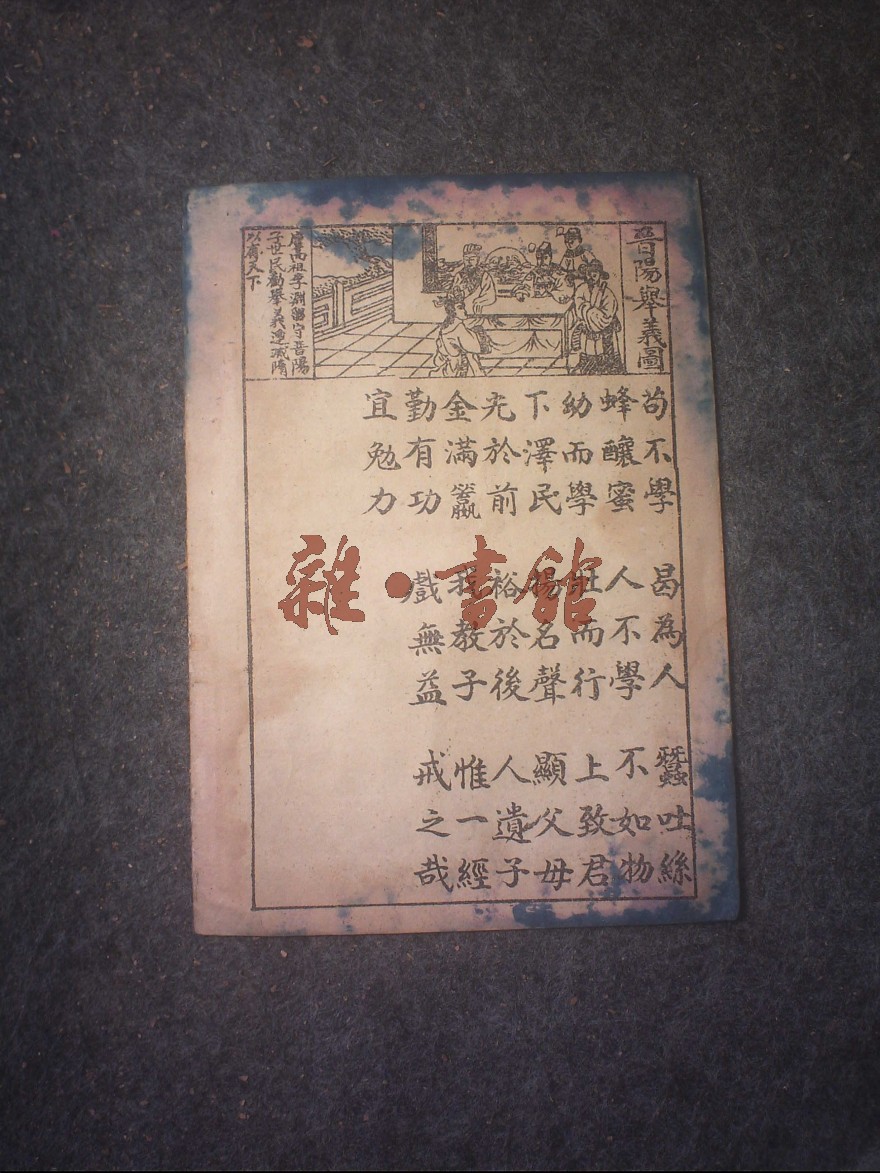 晉陽舉義圖
唐高祖李淵留守晉陽
子世民勸舉義遂滅隋
以有天下
苟不學 曷為人 蠶吐絲
蜂釀蜜 人不學 不如物
幼而學 壯而行 上致君
下澤民 揚名聲 顯父母
光於前 裕於後 人遺子
金滿籯 我教子 惟一經
勤有功 戲無益 戒之哉
宜勉力
雜·書館